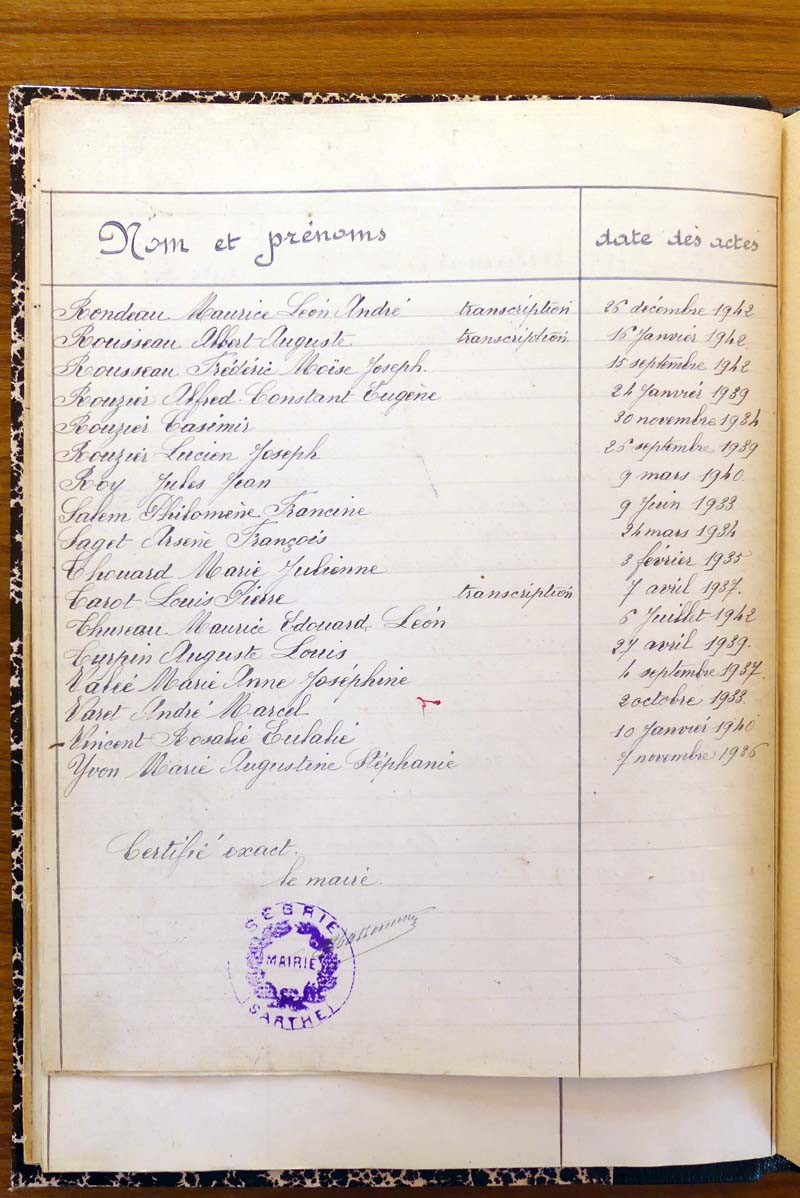 Nom et prénoms date des actes
Rondeau Maurice Léon André transcription 26 décembre 1942
Rousseau Albert Auguste transcription 16 Janvier 1942
Rousseau Frédéric Moïse Joseph. 15 septembre 1942
Rouzier Alfred Constant Eugène 24 Janvier 1939
Rouzier Casimir 30 novembre 1934
Rouzier Lucien Joseph 26 septembre 1939
Roy Jules Jean 9 mars 1940.
Salem Philomène Francine 9 Juin 1933
Saget Arsene François 24 mars 1934
Thouard Marie Julienne 3 février 1935
Tarot Louis Pierre transcription 7 avril 1937.
Thureau Maurice Edouard Léon 6 Juillet 1942
Turpin Auguste Louis 27 avril 1939.
Valeé Marie Anne Joséphine 4 septembre 1937.
Varet André Marcel 2 octobre 1933.
Vincent Rosalie Eulalie 10 Janvier 1940
Yvon Marie Augustine Stéphanie 7 novembre 1936
Certifié exact.
le maire.
SÉGRIE
MAIRIE
(SARTHE)